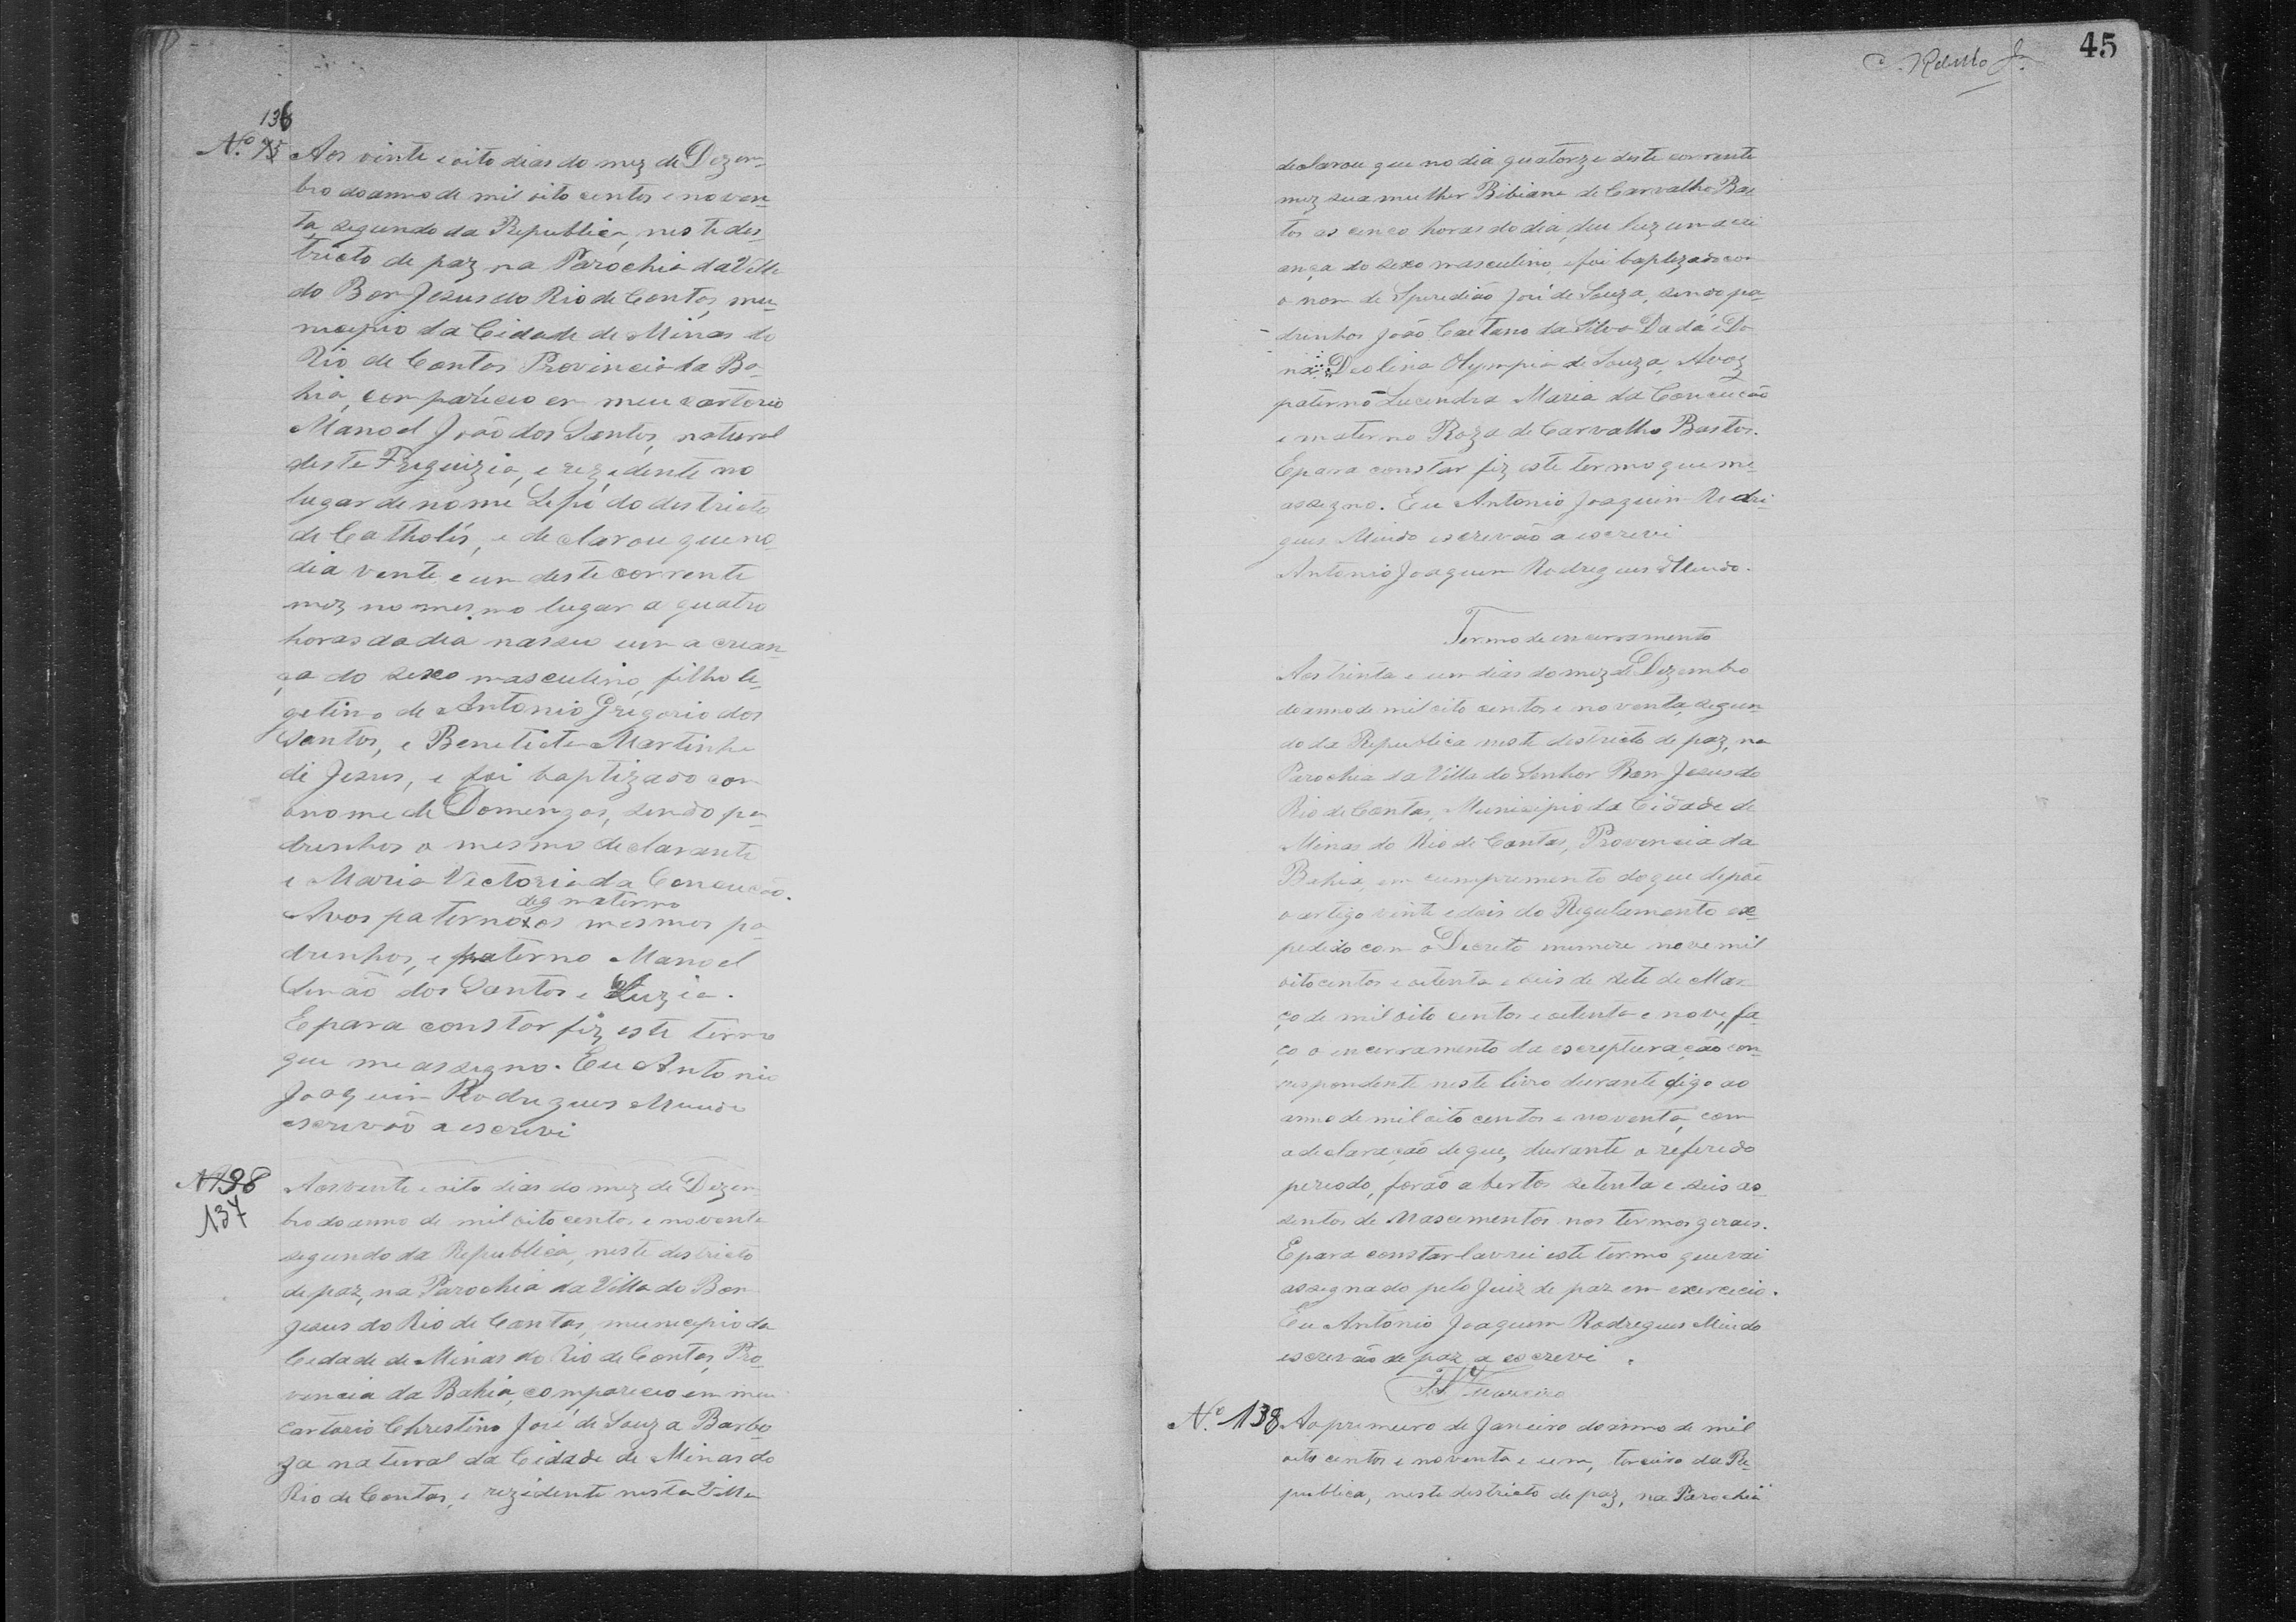 136
Nº 75 Aos vinte e oito dias do mez de Dezem-
bro do anno de mil oito centos e noven-
ta, segundo da Republica, neste des-
tricto de paz, na Parochia da Villa
do Bom Jesus do Rio de Contas, mu-
nicipio da Cidade de Minas do
Rio de Contas Provincia da Ba-
hia, compareceo em meu cartorio
Manoel João dos Santos, natural
deste Freguizia, e rezidente no
lugar de nome do destricto
de Catholés, e declarou que no
dia vente e um deste corrente
mez no mesmo lugar a quatro
horas do dia nasceu um a crian-
ça do sexo masculino, filho le-
getimo de Antonio Gregorio dos
Santos, e Beneticta Martinha
de Jesus, e foi baptizado com
o nome de Domingos, sendo pa-
drinhos o mesmo declarante
e Maria Victoria da Conceicão.
digo materno
Avos paternos os mesmos pa-
drinhos, e paterno Manoel
Simão dos Santos e Luzia.
E para constar fiz este termo
que me assegno. Eu Antonio
Joaquim Rodrigues Mundo
escrivão a escrevi
N 138
137
Aos vente e oito dias do mez de Dezem-
bro do anno de mil oito centos e noventa
segundo da Republica, neste destricto
de paz, na Parochia da Villa do Bom
Jesus do Rio de Contas, municipio da
Cedade de Minas do Rio de Contas, Pro-
vencia da Bahia, compareceo em meu
cartorio Christino José de Souza Barbo-
za natural da Cidade de Minas do
Rio de Contas, e rezidente nesta Villa
45
declarou que no dia quatorze deste corrente
mez sua mulher Bibiana de Carvalho Bas-
tos as cinco horas do dia, deu luz uma cri
ança do sexo masculino, e foi baptezado com
o nom de Speredião José de Souza, sendo pa-
drinhos João Caetano da Silva Dadá e Do-
na Deolina Olympia de Souza, Avoz
paterno Lucendra Maria da Conceicão
e materno Roza de Carvalho Bastos.
E para constar fiz este termo que me
assegno. Eu Antonio Joaquim Rodri-
gues Mundo escrevão a escrevi
Antonio Joaquim Rodrigues Mundo.
Termo de encerramento
Aos trinta e um dias do mez de Dezembro
do anno de mil oito centos e noventa, segun-
do da Republica neste destricto de paz, na
Parochia da Villa do Senhor Bom Jesus do
Rio de Contas, Municipio da Cidade de
Minas do Rio de Contas, Provencia da
Bahia, em cumprimento do que dispõe
o artigo vinte e dois do Regulamento ex-
pedido com o Decreto numero nove mil
oito centos e oitenta e seis de sete de Mar-
ço de mil oito centos e oitenta e nove, fa-
ço o encerramento da escripturação cor-
respondente neste livro durante digo ao
anno de mil oito centos e noventa, com
a declaração de que, durante o referedo
periodo, forão abertos setenta e seis as-
sentos de Nascimentos nos termos geraes.
E para constar lavrei este termo que vai
assegnado pelo Juiz de paz em exercicio.
Eu Antonio Joaquim Rodrigues Mundo
escrevão de paz a escrevi.
Nº 138 Ao primeiro de Janeiro do anno de mil
oito centos e noventa e um, terceiro da Re-
publica, neste destricto de paz, na Parochia